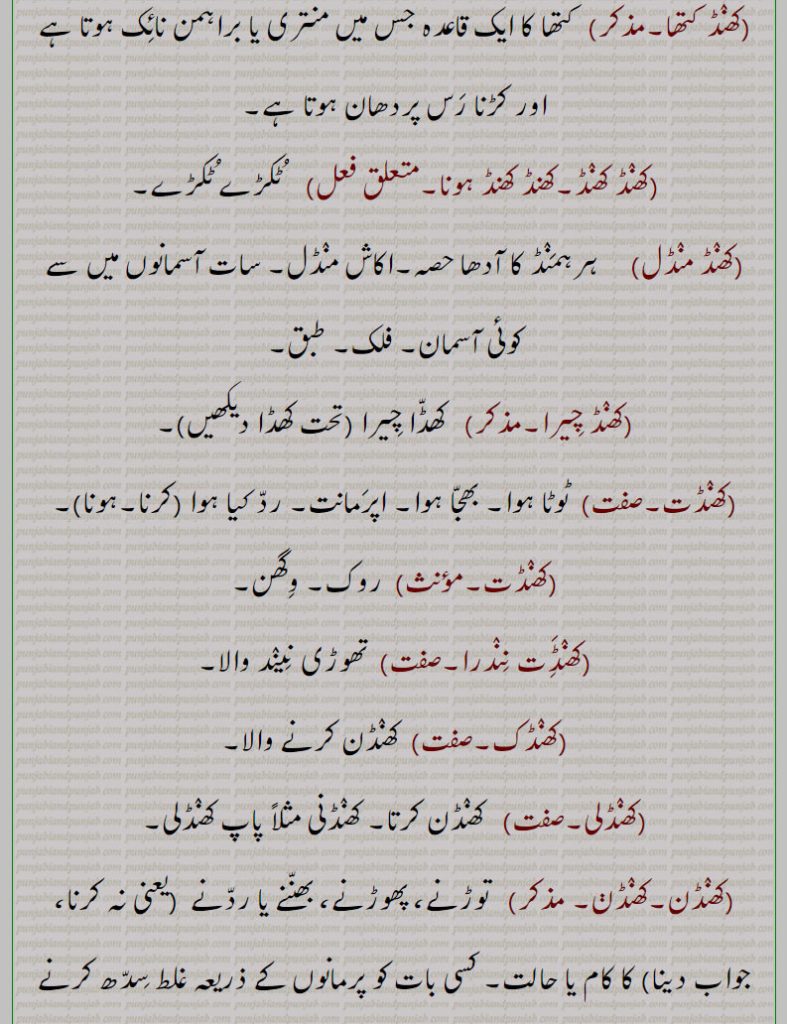 (کھنْڈ کتھا۔مذکر) کتھا کا ایک قاعدہ جس میں منتری یا براہمن نائِک ہوتا ہے
اور کڑنا رَس پردھان ہوتا ہے۔
(کھنْڈ کھنْڈ۔کھنڈ کھنڈ ہونا۔متعلق فعل) ٹُکڑے ٹُکڑے۔
(کھنْڈ منْڈل) ہر ہمَنْڈ کا آدھا حصہ۔اکاش منْڈل۔ سات آسمانوں میں سے
کوئی آسمان۔ فلک۔ طبق۔
(کھنْڈ چِیرا۔مذکر) کھڈّا چِیرا (تحت کھڈا دیکھیں)۔
(کھنْڈت۔صفت) ٹوٹا ہوا۔ بھجّا ہوا۔ اپرَمانت۔ ردّ کیا ہوا (کرنا۔ہونا)۔
(کھنْڈت۔مؤنث) روک۔ وِگھن۔
(کھنْڈَِت نِنْدرا۔صفت) تھوڑی نِینْد والا۔
(کھنْڈک۔صفت) کھنْڈن کرنے والا۔
(کھنْڈلی۔صفت) کھنْڈن کرتا۔ کھنْڈنی مثلاً پاپ کھنْڈلی۔
(کھنْڈن۔کھنْڈنؕ۔ مذکر) توڑنے، پھوڑنے، بھنّنے یا ردّنے (یعنی نہ کرنا،
جواب دینا) کا کام یا حالت۔ کسی بات کو پرمانوں کے ذریعہ غلط سِدّھ کرنے